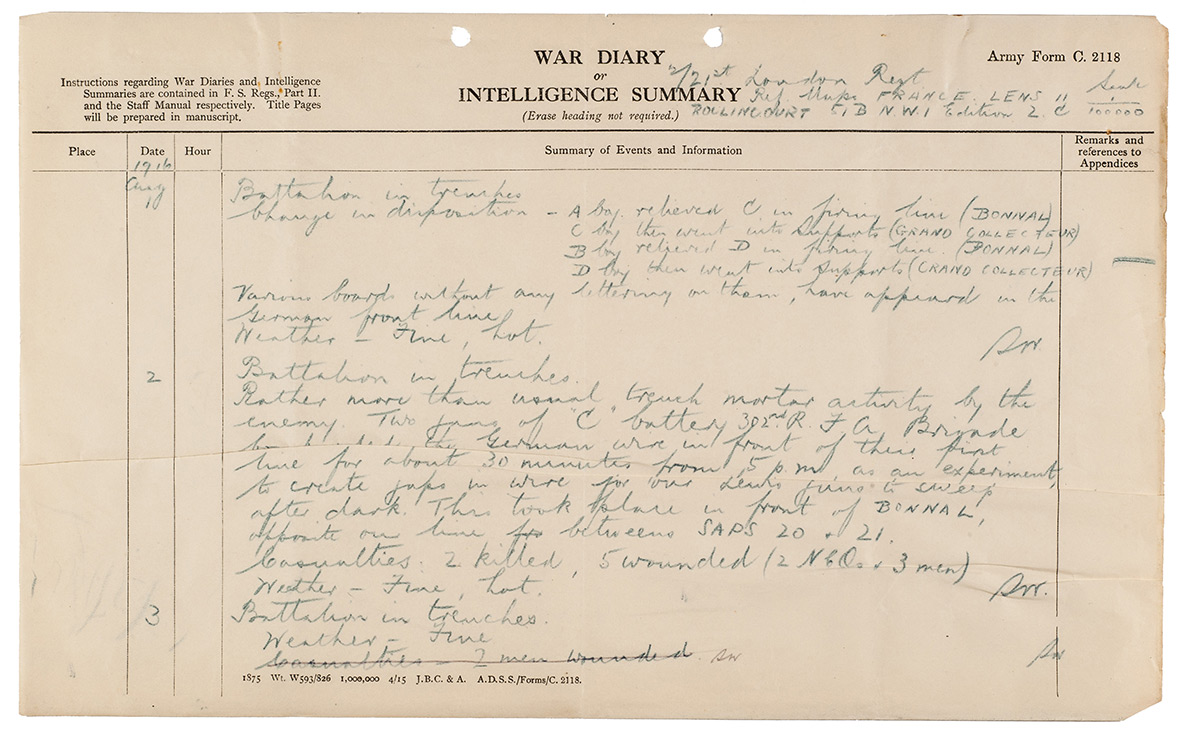 WAR DIARY
or
INTELLIGENCE SUMMARY
(Erase heading not required.)
Army Form C. 2118
Instructions regarding War Diaries and Intelligence
Summaries are contained in F. S. Regs., Part II.
and the Staff Manual respectively. Title Pages
will be prepared in manuscript.
2/21st London Regt
Ref Maps FRANCE LENS 11 Scale 1/100000
ROLLINCOURT 51B N.W.1 Edition 2. C
Place
Date
Hour
Summary of Events and Information
Remarks and
references to
Appendices
1916
Aug
1
Battalion in trenches
Change in disposition – A Coy. relieved C. in firing line (BONNAL)
C Coy then went into Supports (GRAND COLLECTEUR)
B Coy relieved D in firing line. (BONNAL)
D Coy then went into Supports (GRAND COLLECTEUR)
Various boards without any lettering on them, have appeared in the
German front line
Weather – Fine, hot.
2
Battalion in trenches.
Rather more than usual trench mortar activity by the
enemy. Two guns of "C" battery 302nd R. F A Brigade
the German wire in front of their first
line for about 30 minutes from 5 p.m. as an experiment,
to create gaps in wire for our Lewis guns to sweep
after dark. This took place in front of BONNAL,
opposite our line betweens SAPS 20 & 21.
Casualties: 2 killed, 5 wounded (2 NCOs & 3 men)
Weather – Fine, hot.
3
Battalion in trenches.
Weather – Fine
Casualties – 2 men wounded.
1875 Wt. W593/826 1,000,000 4/15 J.B.C. & A. A.D.S.S./Forms/C. 2118.